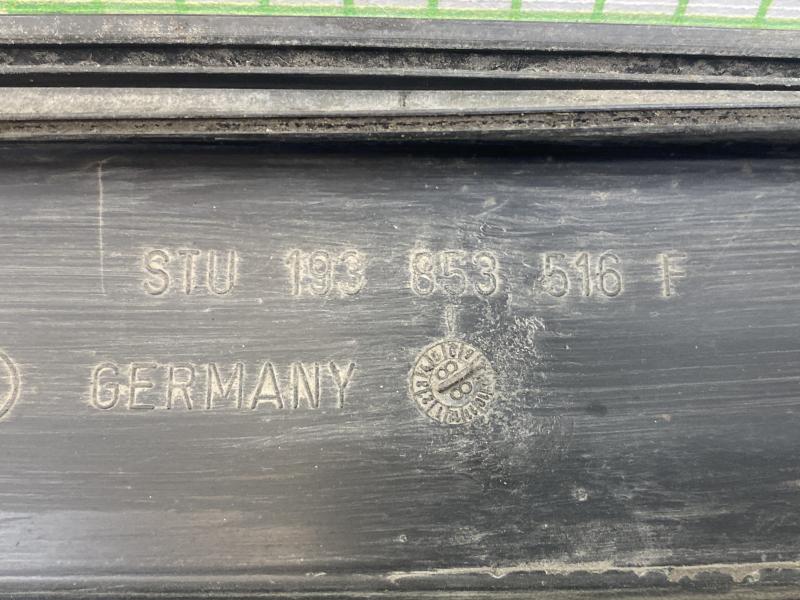 STU 193 853 516 F
GERMANY
88